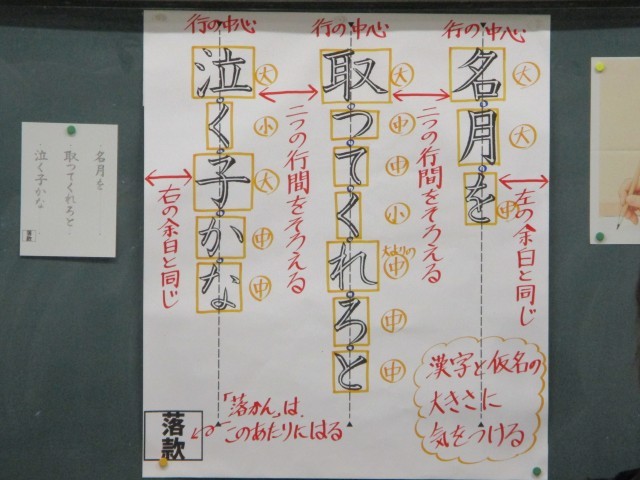 行の中心
行の中心
行の中心
名月を
大
大
中
左の余白と同じ
二つの行間をそろえる
取ってくれろと
大
中
中
小
大よりの中
中
中
二つの行間をそろえる
泣く子かな
大
小
大
中
中
右の余白と同じ
漢字と仮名の
大きさに
気をつける
「落かん」は、
このあたりにはる
落款
名月を
取ってくれろと
泣く子かな
落款